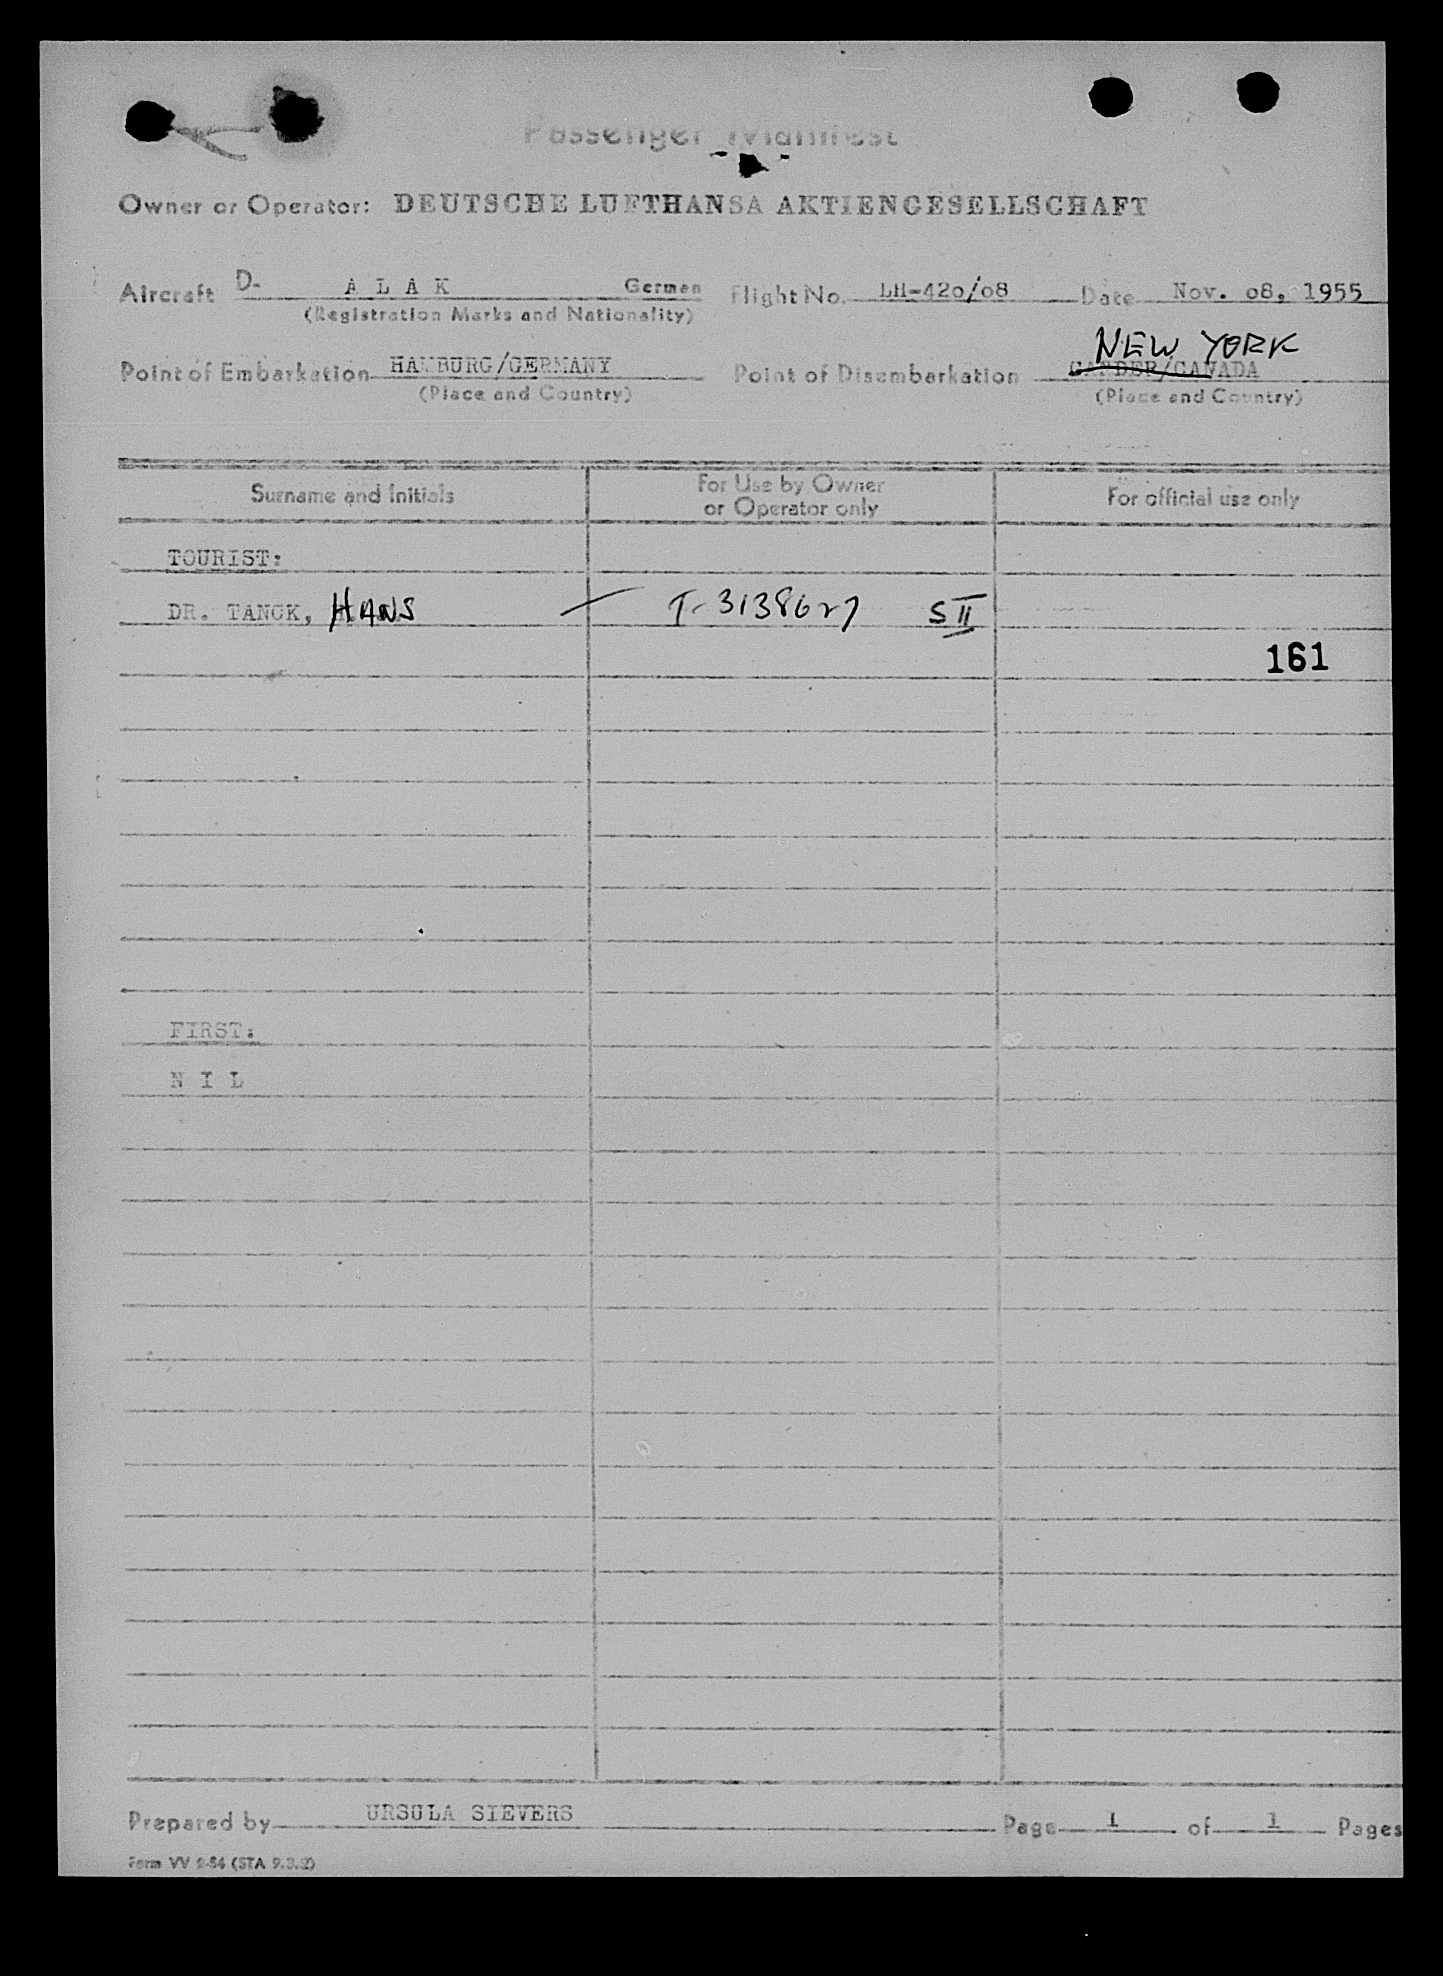 Passenger Manifest
Owner or Operator: DEUTSCHE LUFTHANSA AKTIENGESELLSCHAFT
Aircraft D- A L A K German Flight No. LH-42o/o8 Date Nov. o8, 1955
(Registration Marks and Nationality)
NEW YORK
Point of Embarkation HAMBURG/GERMANY Point of Disembarkation GANDER/CANADA
(Place and Country) (Place and Country)
Surname and Initials For Use by Owner or Operator only For official use only
TOURIST:
DR. TANCK, HANS T- 3138627 S II
161
FIRST:
N I L
Prepared by URSULA SIEVERS Page 1 of 1 Pages
Form VV 2-54 (STA 9.3.2)